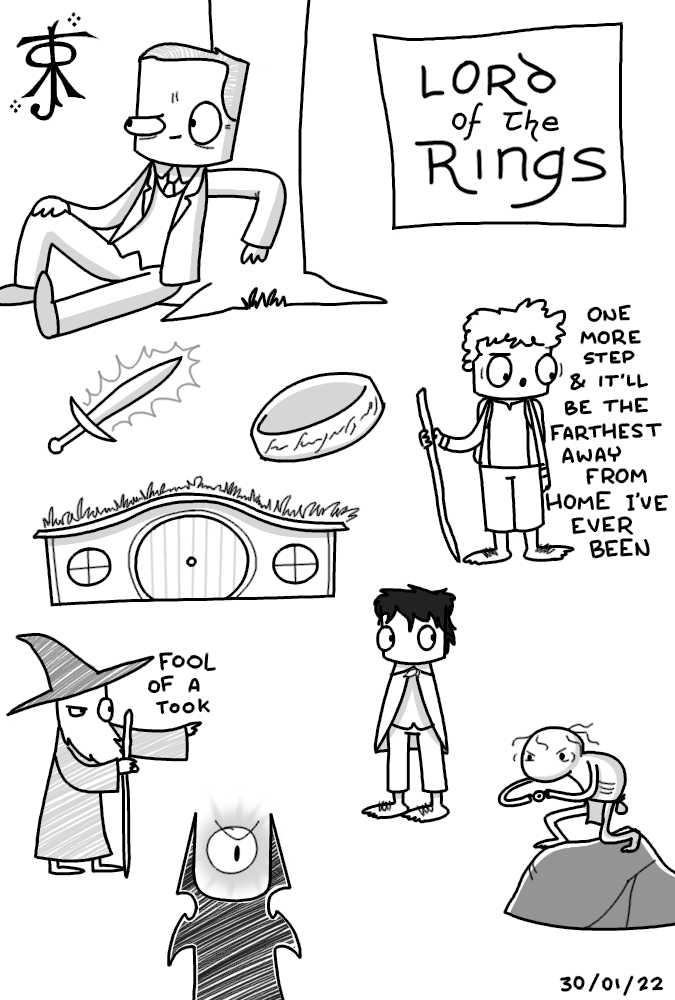 LORD
of the
Rings
ONE
MORE
STEP
& IT'LL
BE THE
FARTHEST
AWAY
FROM
HOME I'VE
EVER
BEEN
FOOL
OF A
TOOK
30/01/22